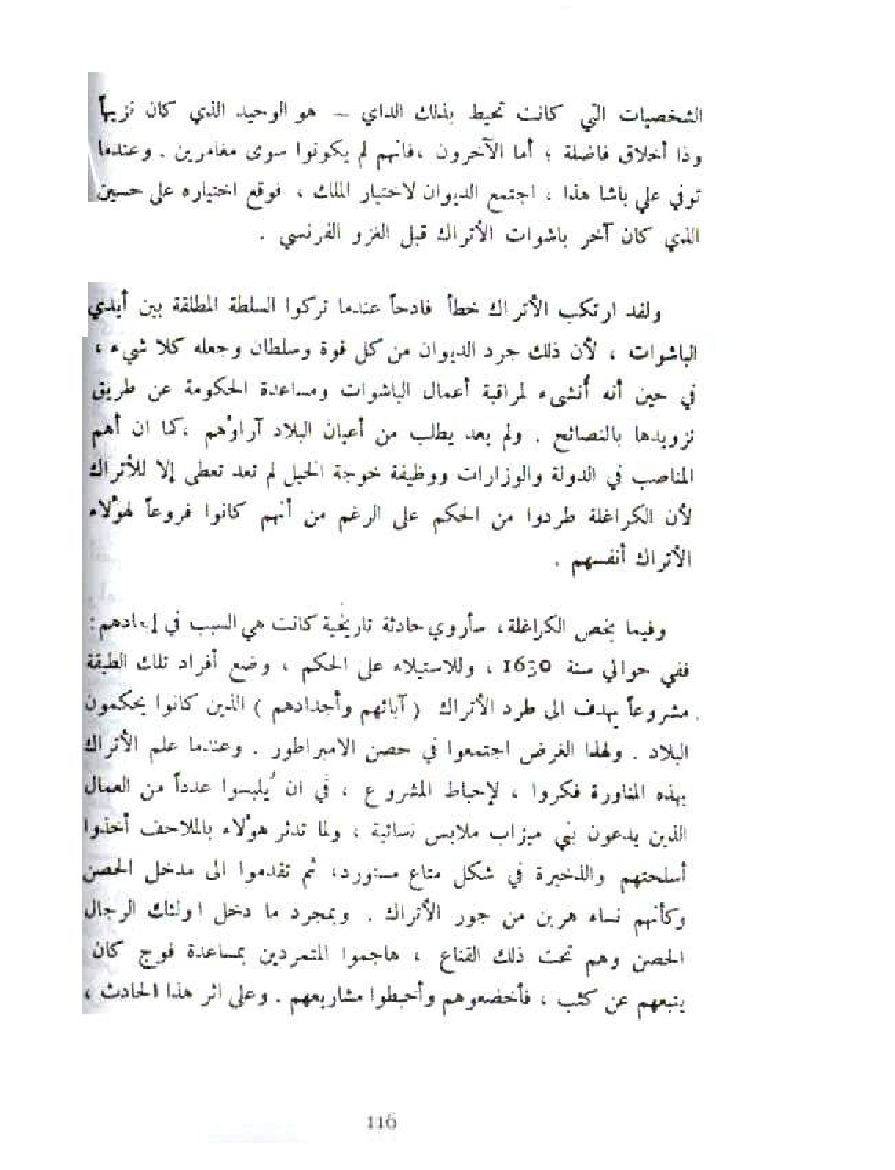 الشخصيات التي كانت تحيط بذلك الداي – هو الوحيد الذي كان نزيهاً
وذا أخلاق فاضلة ؛ أما الآخرون ،فانهم لم يكونوا سوى مغامرين . وعندما
توفي علي باشا هذا ، اجتمع الديوان لاختيار الملك ، فوقع اختياره على حسين
الذي كان آخر باشوات الأتراك قبل الغزو الفرنسي .
ولقد ارتكب الأتراك خطأ فادحاً عندما تركوا السلطة المطلقة بين أيدي
الباشوات ، لأن ذلك جرد الديوان من كل قوة وسلطان وجعله كلا شيء ،
في حين أنه أُنشىء لمراقبة أعمال الباشوات ومساعدة الحكومة عن طريق
تزويدها بالنصائح . ولم يعد يطلب من أعيان البلاد آراؤهم ،كما ان أهم
المناصب في الدولة والوزارات ووظيفة خوجة الخيل لم تعد تعطى إلا للأتراك
لأن الكراغلة طردوا من الحكم على الرغم من أنهم كانوا فروعاً لهؤلاء
الأتراك أنفسهم .
وفيما يخص الكراغلة، سأروي حادثة تاريخية كانت هي السبب في إبعادهم:
ففي حوالي سنة 1630 ، وللاستيلاء على الحكم ، وضع أفراد تلك الطبقة
مشروعاً يهدف الى طرد الأتراك ( آبائهم وأجدادهم ) الذين كانوا يحكمون
البلاد . ولهذا الغرض اجتمعوا في حصن الامبراطور . وعندما علم الأتراك
بهذه المناورة فكروا ، لإحباط المشروع ، في ان يُلبسوا عدداً من العمال
الذين يدعون بني ميزاب ملابس نسائية ، ولما تدثر هؤلاء بالملاحف أخذوا
أسلحتهم والذخيرة في شكل متاع مستورد، ثم تقدموا الى مدخل الحصن
وكأنهم نساء هربن من جور الأتراك . وبمجرد ما دخل اولئك الرجال
الحصن وهم تحت ذلك القناع ، هاجموا المتمردين بمساعدة فوج كان
يتبعهم عن كثب ، فأخضعوهم وأحبطوا مشاريعهم . وعلى اثر هذا الحادث ،
116